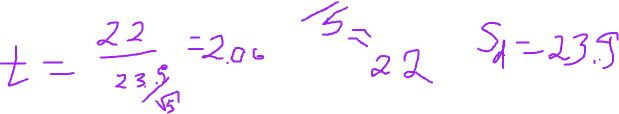 t = 22 / (23.9/√5) = 2.06  = 22  S_d = 23.9